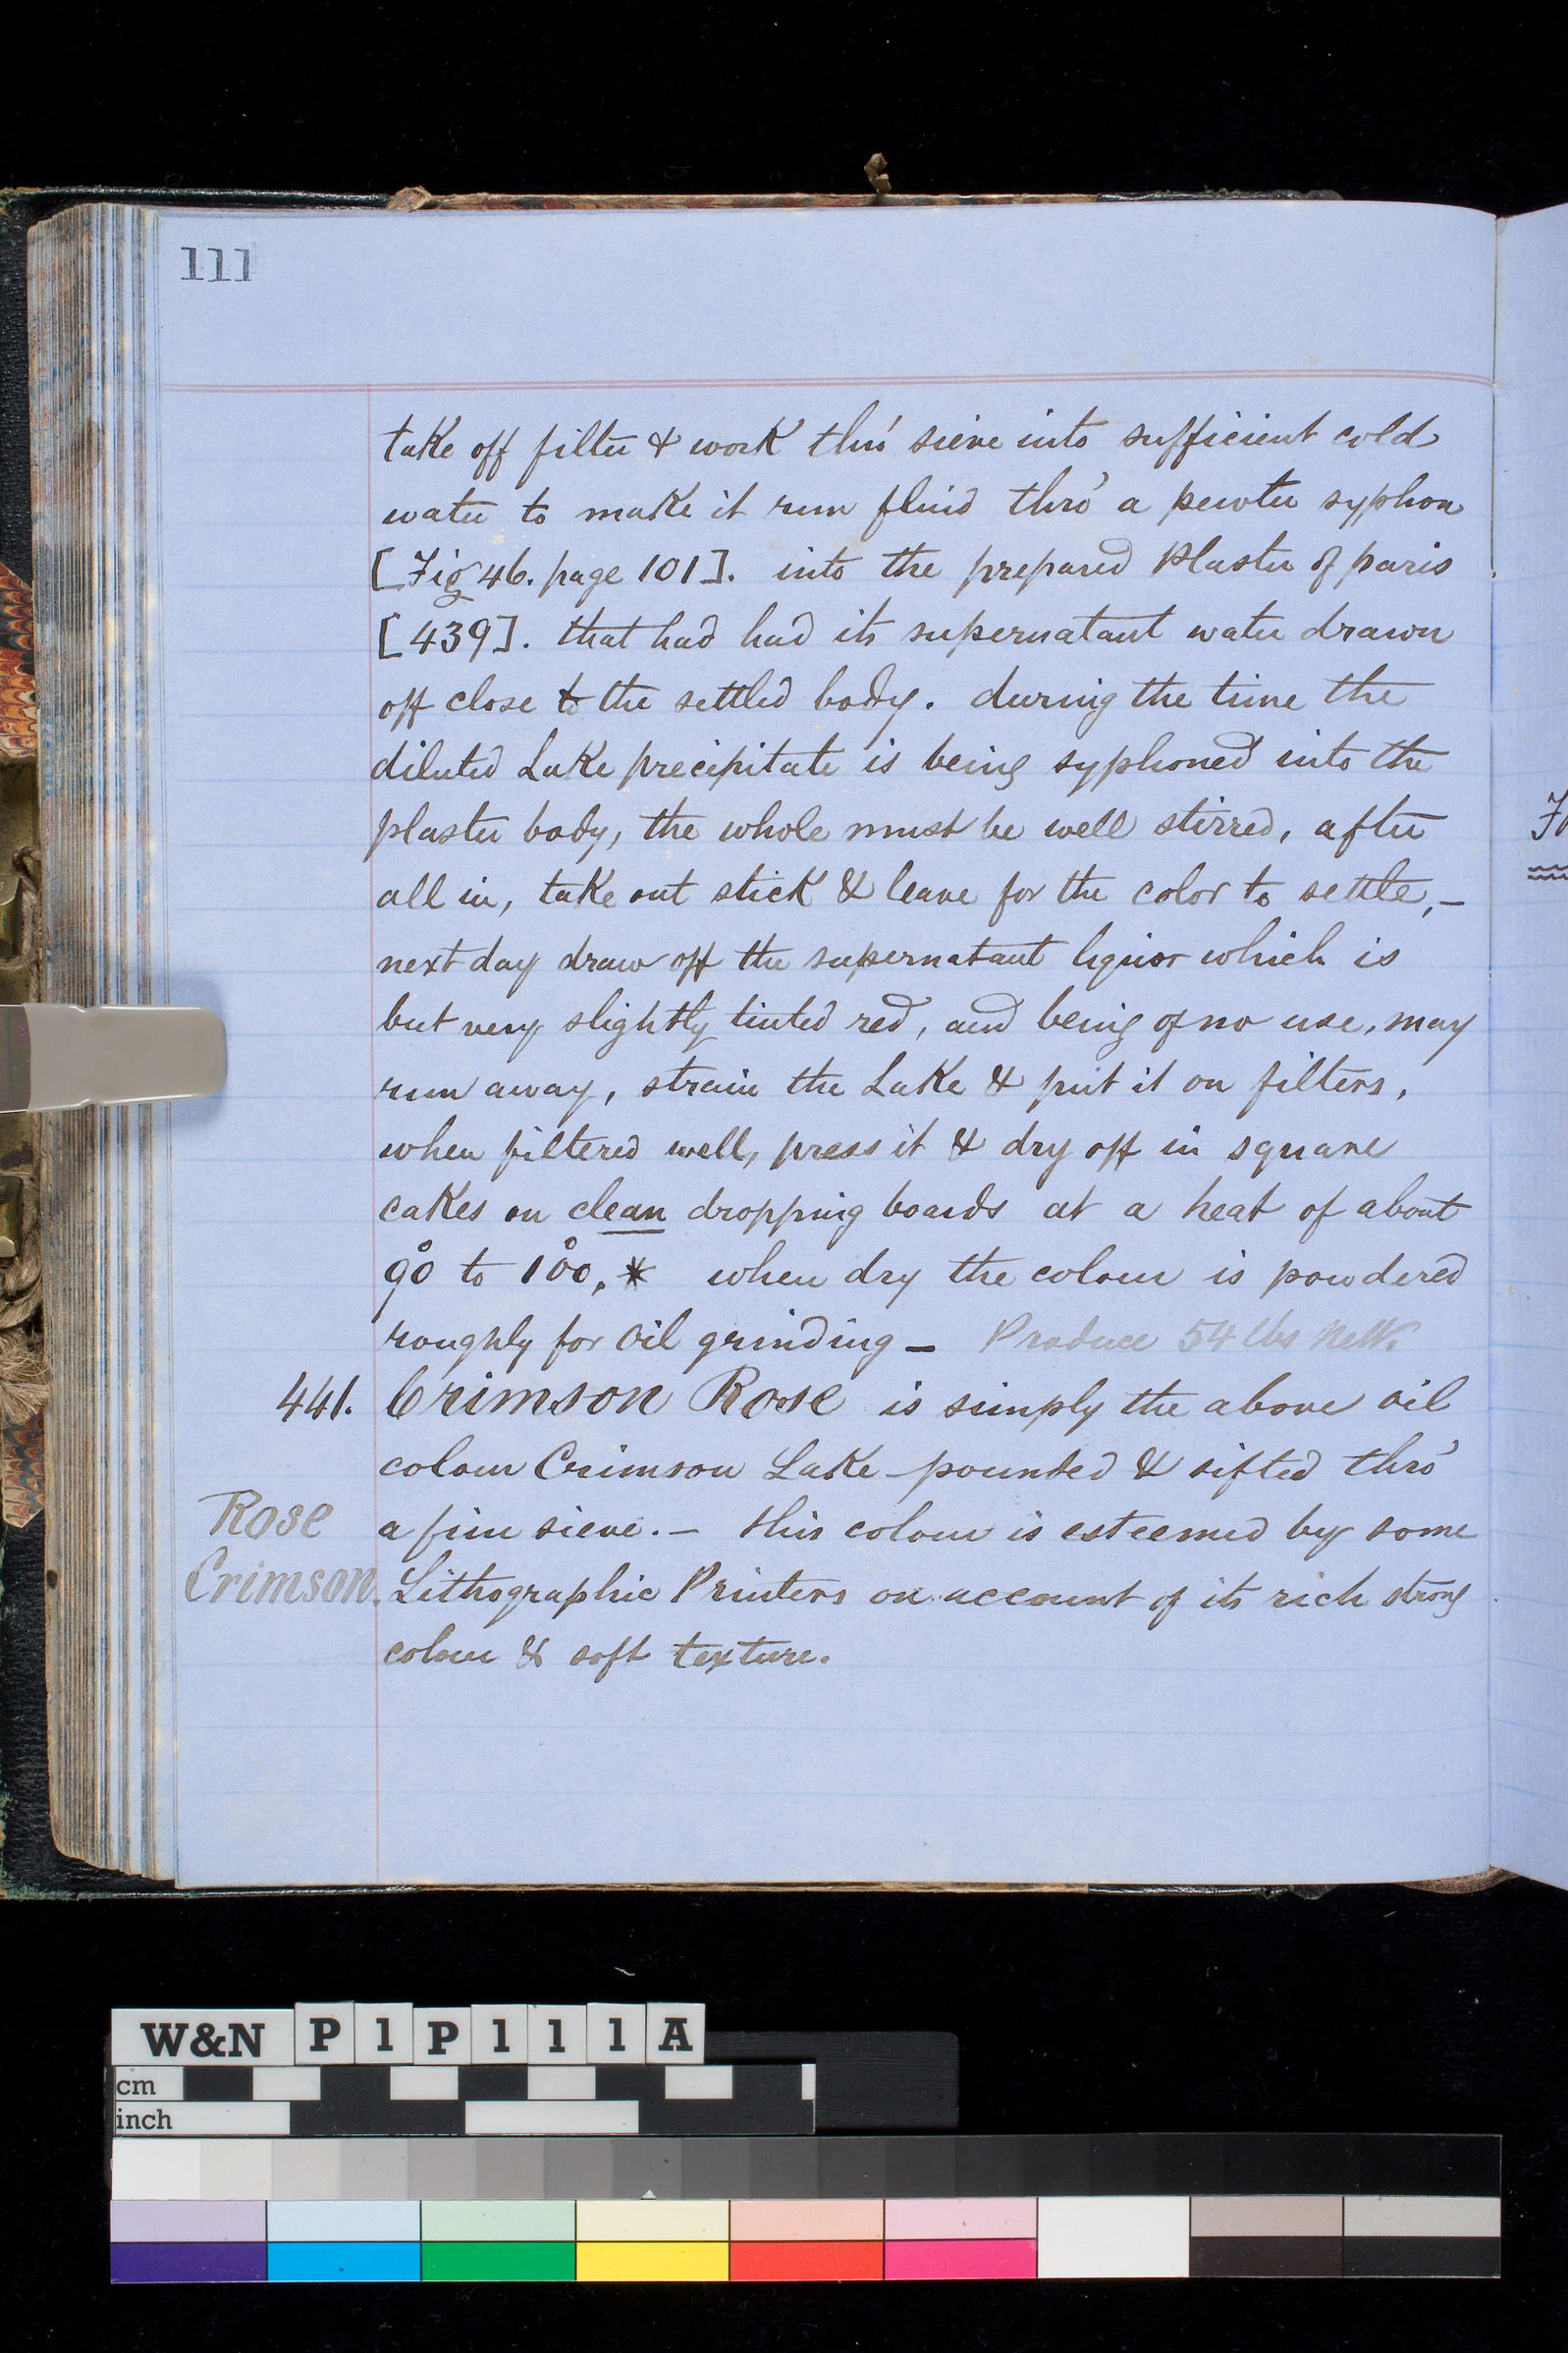 111
take off filter & work thro' sieve into sufficient cold
water to make it run fluid thro' a pewter syphon
[Fig 46. page 101]. into the prepared Plaster of paris
[439]. that had had its supernatant water drawn
off close to the settled body. during the time the
diluted Lake precipitate is being syphoned into the
plaster body, the whole must be well stirred, after
all in, take out stick & leave for the color to settle,–
next day draw off the supernatant liquor which is
but very slightly tinted red, and being of no use, may
run away, strain the Lake & put it on filters,
when filtered well, press it & dry off in square
cakes on clean dropping boards at a heat of about
90° to 100°. * when dry the colour is powdered
roughly for oil grinding – Produce 54 lbs Nett.
441. Crimson Rose is simply the above oil
colour Crimson Lake pounded & sifted thro'
Rose
a fine sieve. – this colour is esteemed by some
Crimson.
Lithographic Printers on account of its rich strong
colour & soft texture.
W&N P1P111A
cm
inch